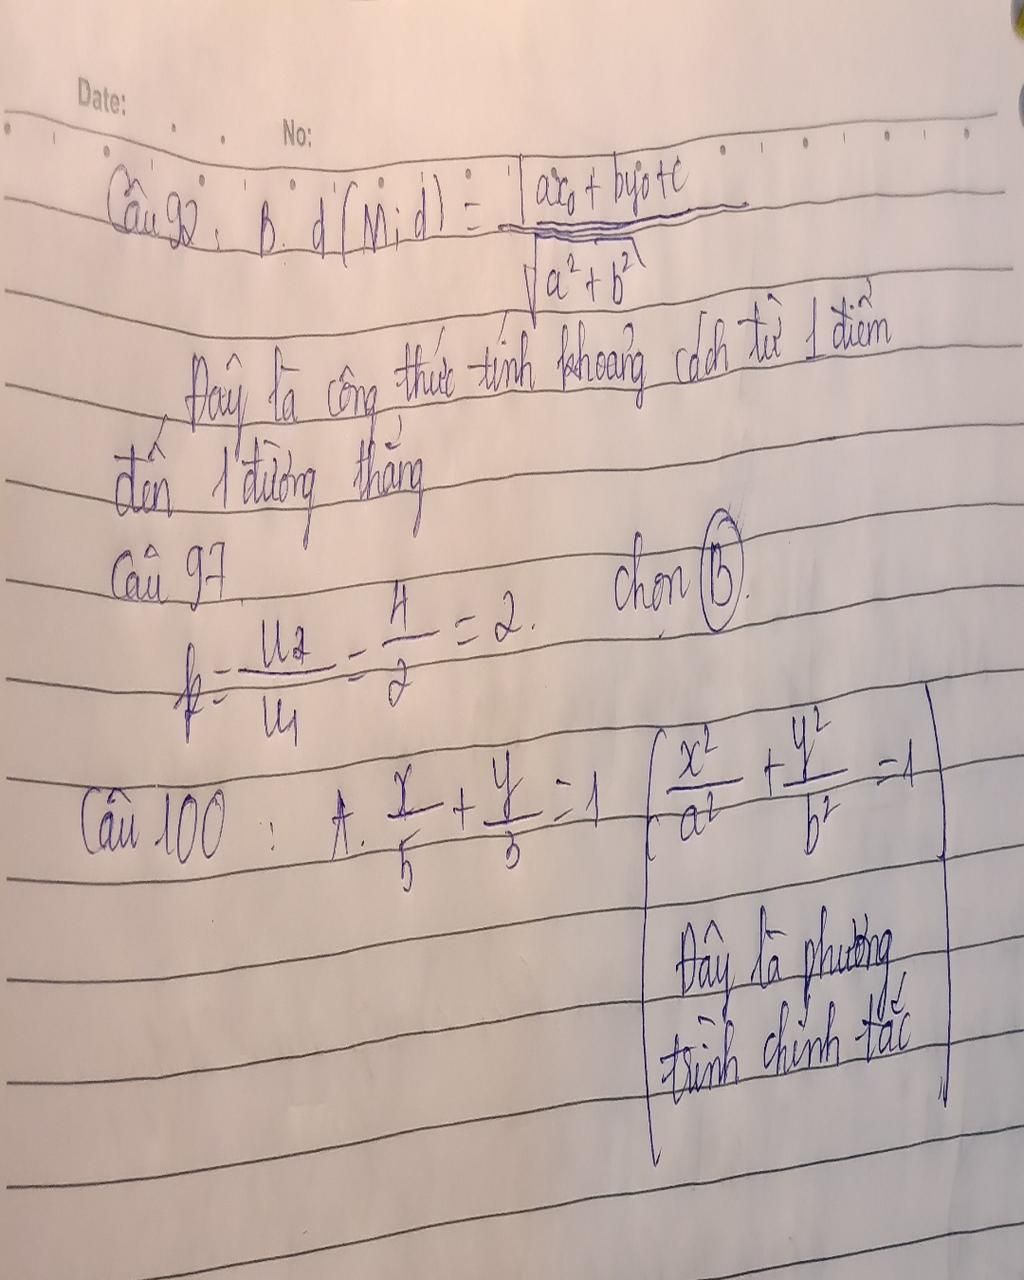 Date:
No:
Câu 92: B. d(M; d) = |ax₀ + by₀ + c / √a² + b²
Đây là công thức tính khoảng cách từ 1 điểm
đến 1 đường thẳng
Câu 97
k = u₂/u₁ = 4/2 = 2. chọn B.
Câu 100 : A. x/5 + y/3 = 1 (x²/a² + y²/b² = 1
Đây là phương
trình chính tắc